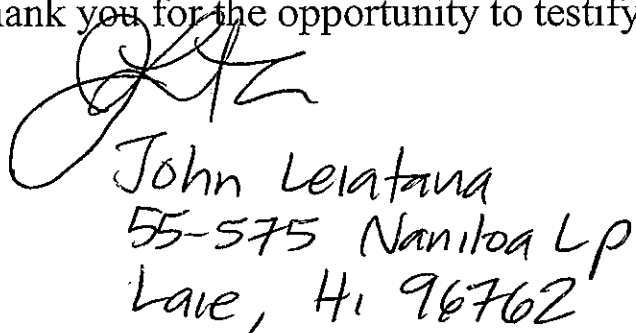 hank you for the opportunity to testify
John Leiatana
55-575 Naniloa Lp
Laie, Hi 96762